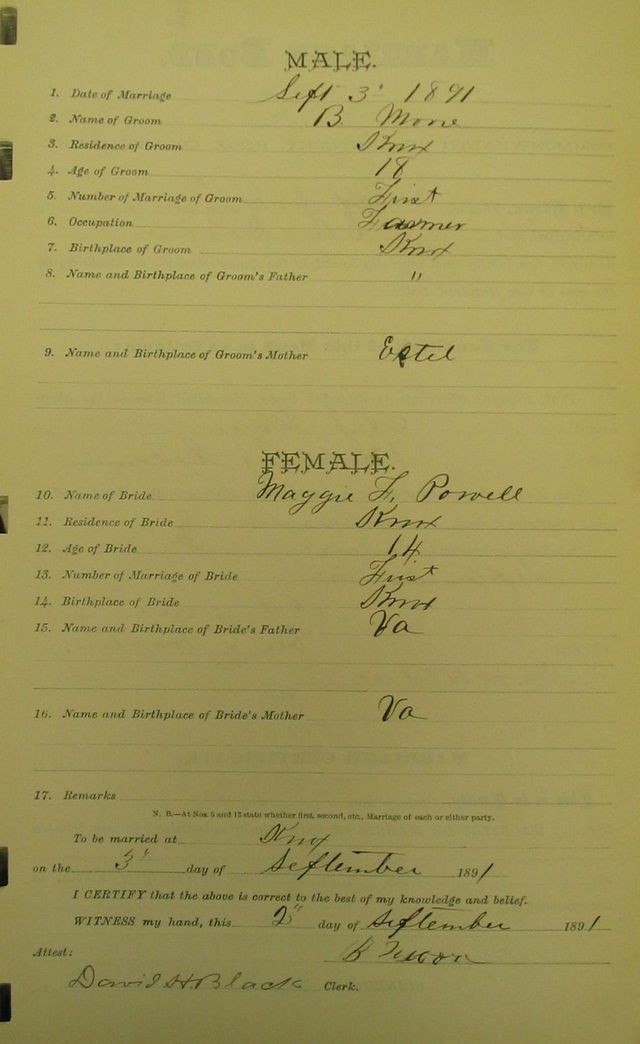 MALE.
1. Date of Marriage Sept 3" 1891
2. Name of Groom B. Moore
3. Residence of Groom Knox
4. Age of Groom 18
5. Number of Marriage of Groom First
6. Occupation Farmer
7. Birthplace of Groom Knox
8. Name and Birthplace of Groom's Father "
9. Name and Birthplace of Groom's Mother Estel
FEMALE.
10. Name of Bride Maggie F. Powell
11. Residence of Bride Knox
12. Age of Bride 14
13. Number of Marriage of Bride First
14. Birthplace of Bride Knox
15. Name and Birthplace of Bride's Father Va
16. Name and Birthplace of Bride's Mother Va
17. Remarks
N. B.—At Nos. 5 and 13 state whether first, second, etc., Marriage of each or either party.
To be married at Knox
on the 3" day of September 1891
I CERTIFY that the above is correct to the best of my knowledge and belief.
WITNESS my hand, this 2" day of September 1891
B
Attest:
David H Black Clerk.